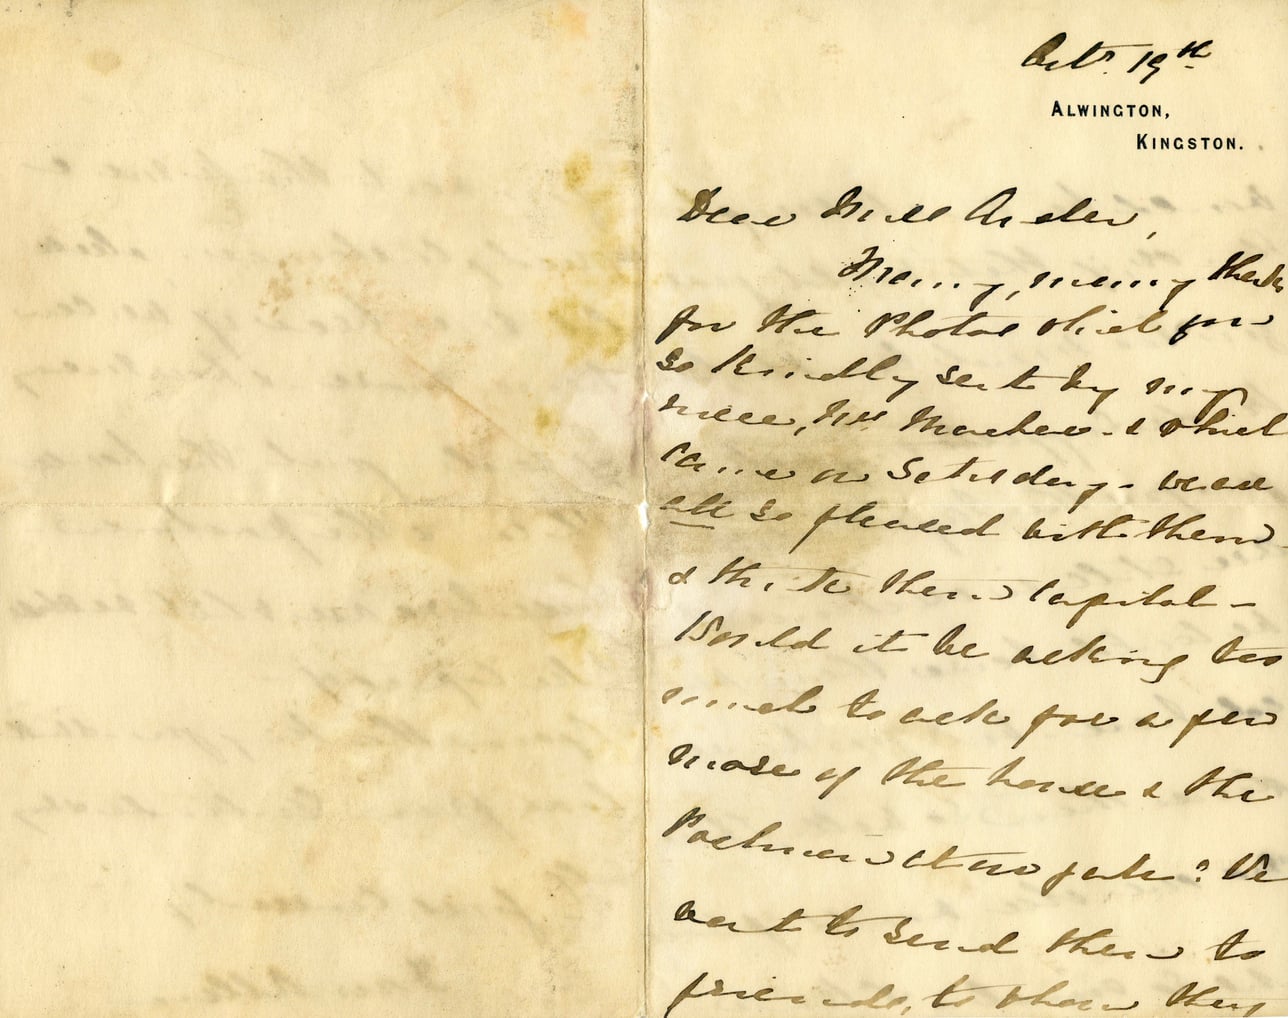 Octr. 19th
ALWINGTON,
KINGSTON.
Dear Miss
Many, many thanks
for the Photos which you
so kindly sent by my
niece, & which
came on Saturday - we are
all so pleased with them
& think them Capital -
Would it be asking too
much to ask for a few
more of the house & the
Postman at no gate? We
want to send them to
friends, to show they